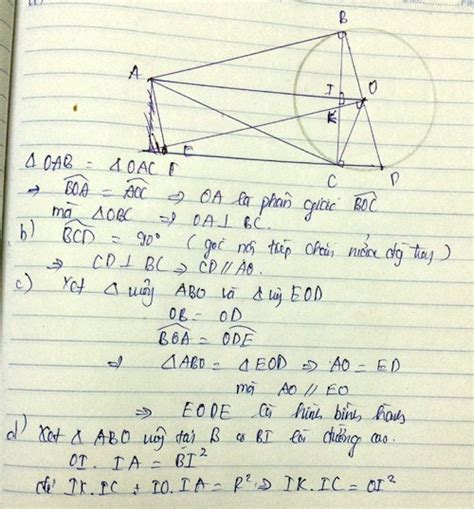 B
A
I
O
K
E
C
D
Δ OAB = Δ OAC
⇒ BOA = AOC ⇒ OA là phân giác BOC
mà Δ OBC ⇒ OA ⊥ BC.
b) BCD = 90° (góc nội tiếp chắn nửa đg tròn)
⇒ CD ⊥ BC ⇒ CD // AO.
c) Xét Δ vuông ABO và Δ vg EOD
OB = OD
BOA = ODE
⇒ Δ ABO = Δ EOD ⇒ AO = ED
mà AO // ED
⇒ là hình bình hành
d) Xét Δ ABO vuông tại B có BI là đường cao.
OI . IA = BI²
IK.IC + IO.IA = R² ⇒ IK.IC = OI²